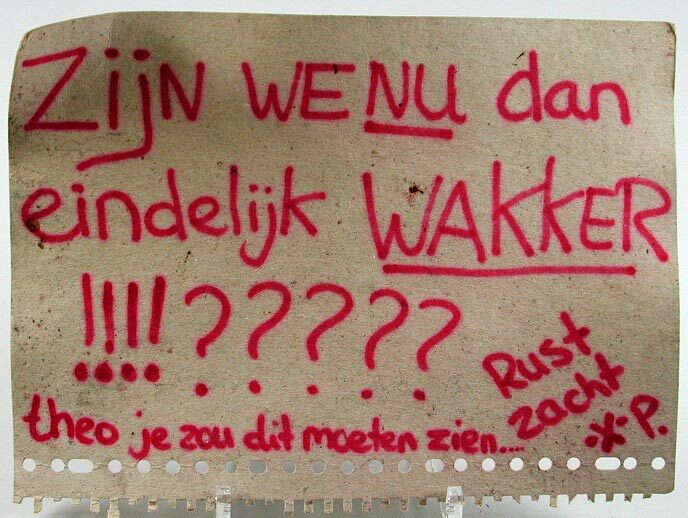 Zijn WE NU dan
eindelijk WAKKER
!!!!?????
Rust
zacht
theo je zou dit moeten zien....
-X- P.